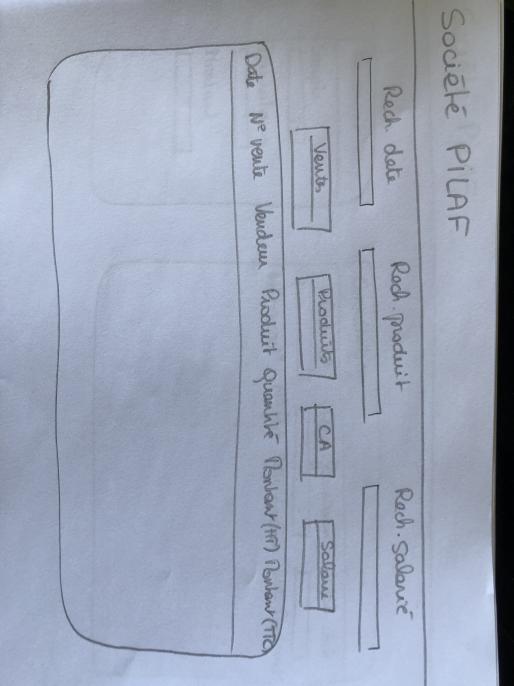 Société PILAF
Rech. date Rech. produit Rech. Salarié
Ventes Produits CA Salarié
Date N° vente Vendeur Produit Quantité Montant (HT) Montant (TTC)